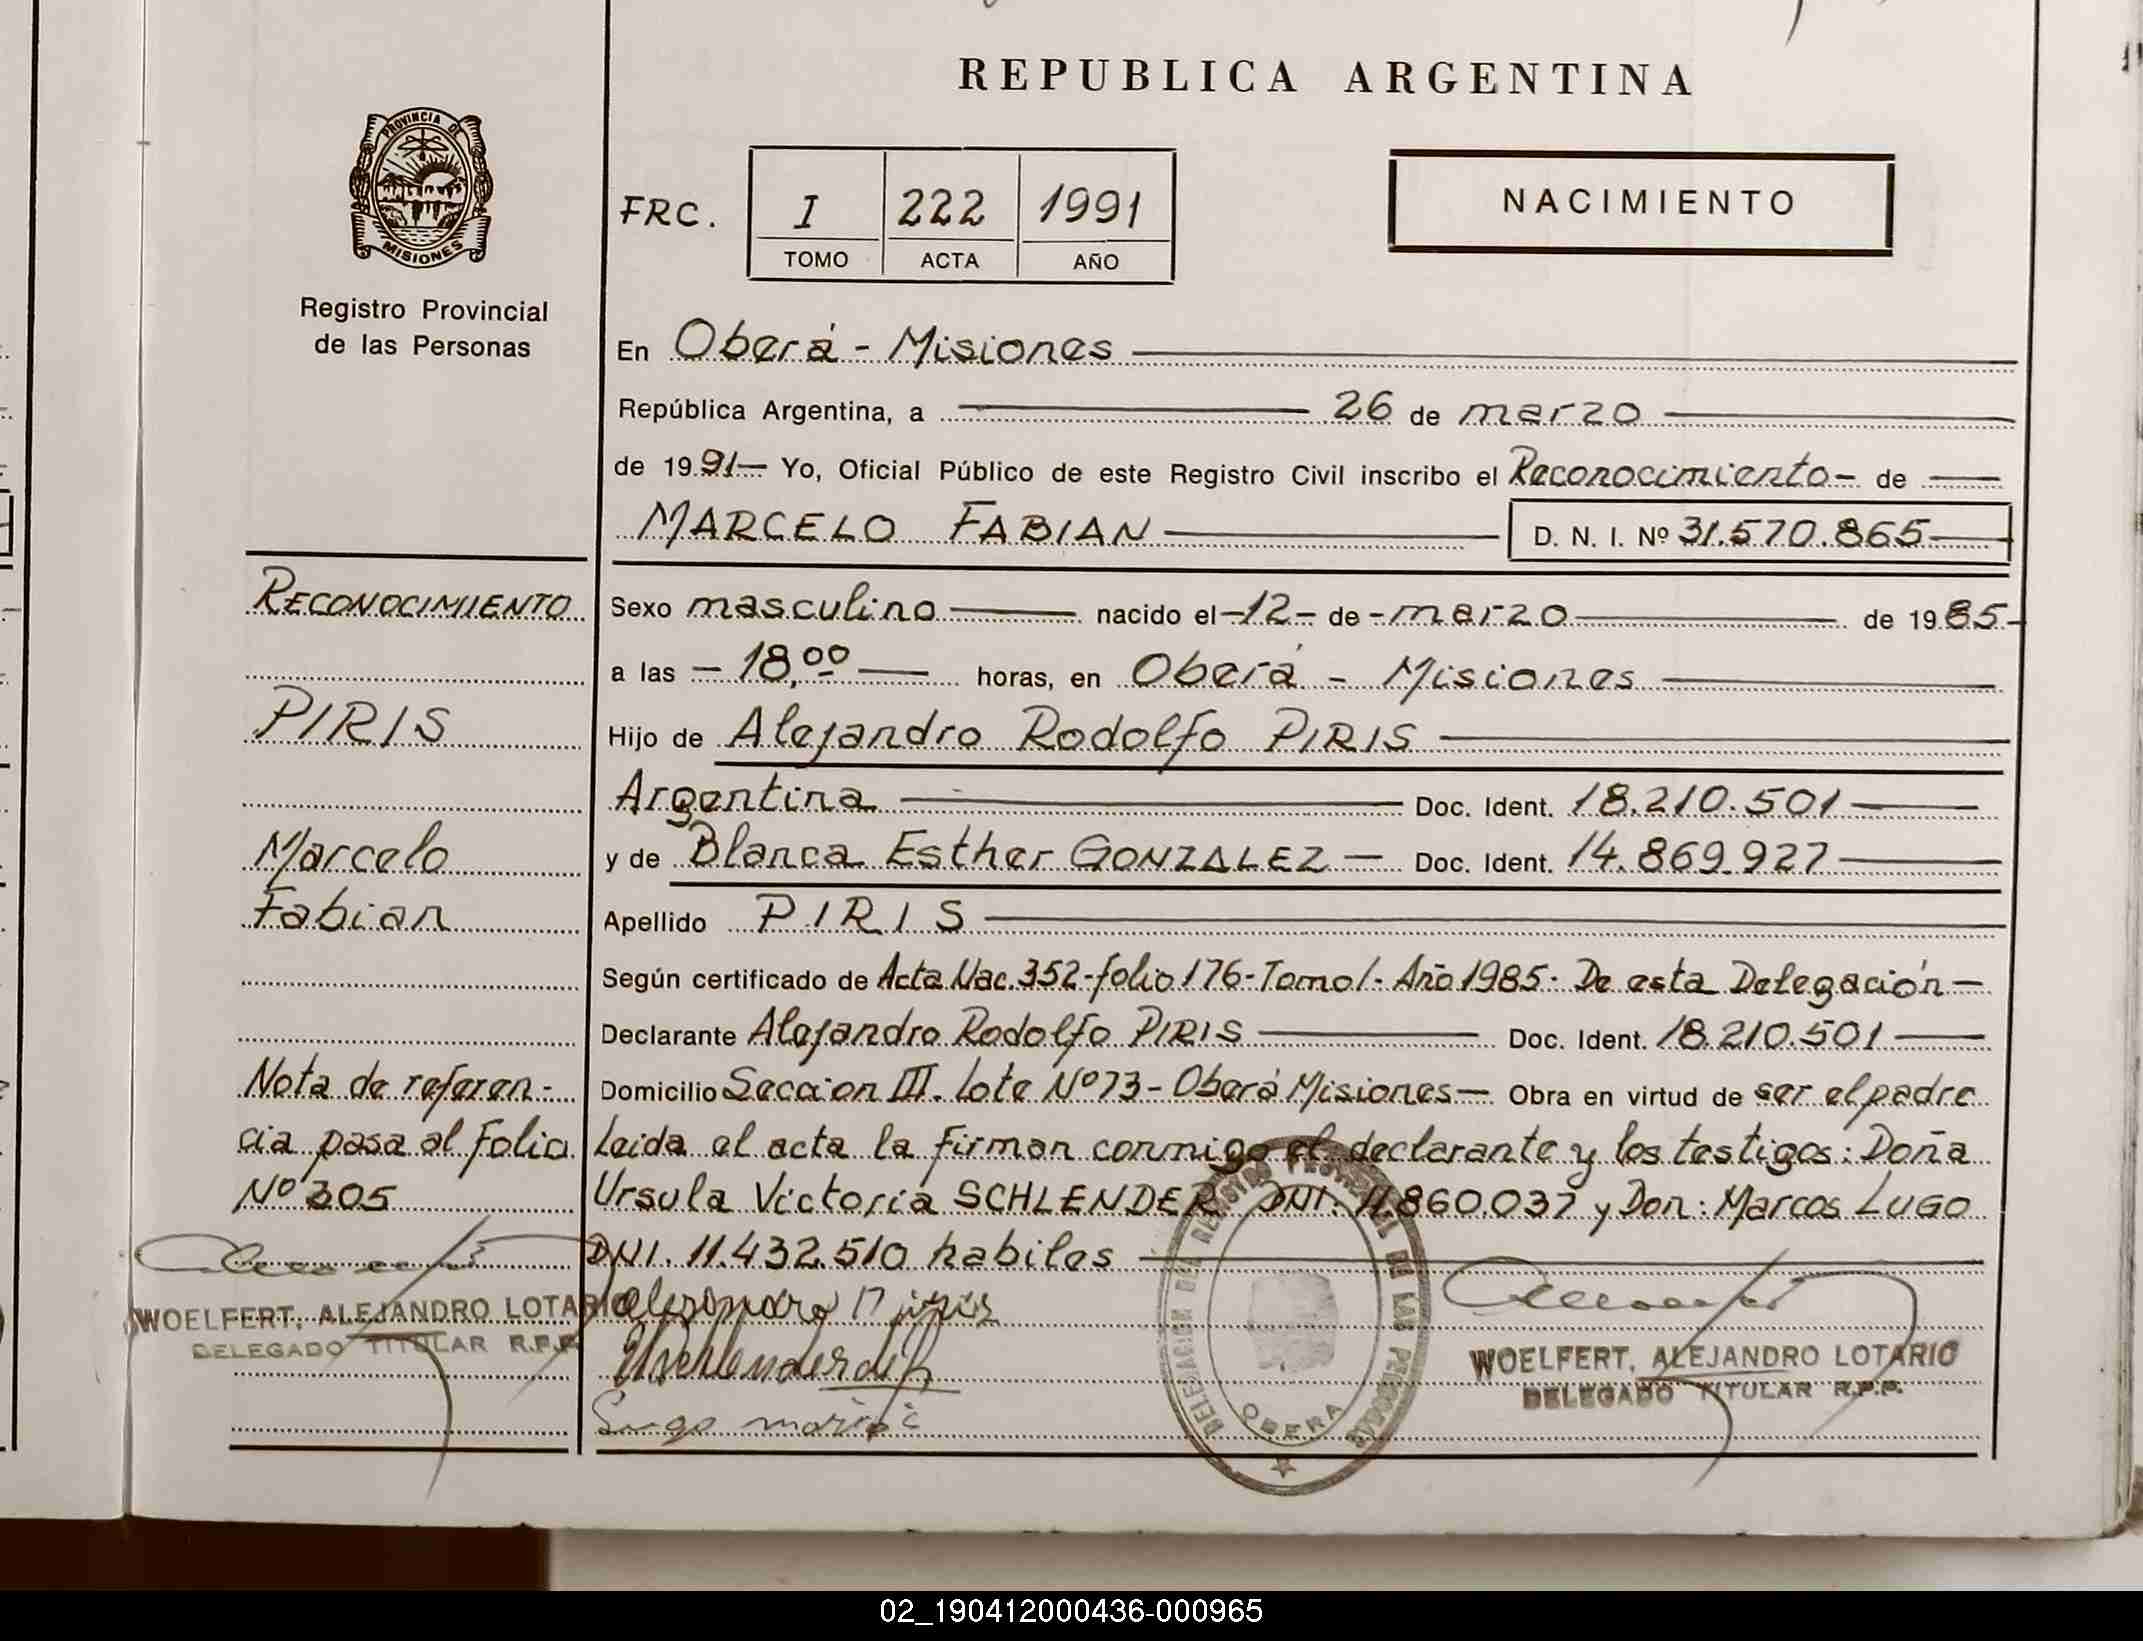 REPUBLICA ARGENTINA
PROVINCIA DE
MISIONES
Registro Provincial
de las Personas
FRC. I 222 1991
TOMO ACTA AÑO
NACIMIENTO
En Oberá - Misiones
República Argentina, a 26 de marzo
de 1991 - Yo, Oficial Público de este Registro Civil inscribo el Reconocimiento - de
MARCELO FABIAN D. N. I. Nº 31.570.865
Sexo masculino nacido el - 12 - de - marzo de 1985 -
a las - 18,00 horas, en Oberá - Misiones
Hijo de Alejandro Rodolfo PIRIS
Argentina Doc. Ident. 18.210.501
y de Blanca Esther GONZALEZ - Doc. Ident. 14.869.927
Apellido PIRIS
Según certificado de Acta Nac. 352 - folio 176 - Tomo I - Año 1985 - De esta Delegación -
Declarante Alejandro Rodolfo PIRIS Doc. Ident. 18.210.501
Domicilio Seccion III. Lote Nº 73 - Oberá Misiones - Obra en virtud de ser el padre
Leida el acta la firman conmigo el declarante y los testigos: Doña
Ursula Victoria SCHLENDER DNI. 11.860.037 y Don: Marcos LUGO
DNI. 11.432.510 habiles
RECONOCIMIENTO
PIRIS
Marcelo
Fabian
Nota de referen-
cia pasa al folio
Nº 305
WOELFERT, ALEJANDRO LOTARIO
DELEGADO TITULAR R.P.P.
DELEGACION DEL REGISTRO PROVINCIAL DE LAS PERSONAS
OBERA
WOELFERT, ALEJANDRO LOTARIO
DELEGADO TITULAR R.P.P.
02_190412000436-000965